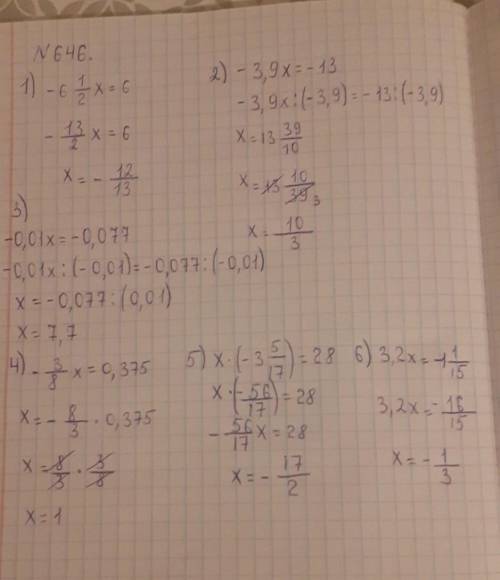 N646.
1) -6 1/2 x = 6
- 13/2 x = 6
x = - 12/13
2) - 3,9x = -13
-3,9x : (-3,9) = -13 : (-3,9)
x = 13 39/10
x = 13 10/39 3
x = 10/3
3)
-0,01x = -0,077
-0,01x : (-0,01) = -0,077 : (-0,01)
x = -0,077 : (0,01)
x = 7,7
4) - 3/8 x = 0,375
x = - 8/3 · 0,375
x = 8/3 · 3/8
x = 1
5) x · (-3 5/17) = 28
x · (-56/17) = 28
- 56/17 x = 28
x = - 17/2
6) 3,2x = -1 1/15
3,2x = - 16/15
x = - 1/3